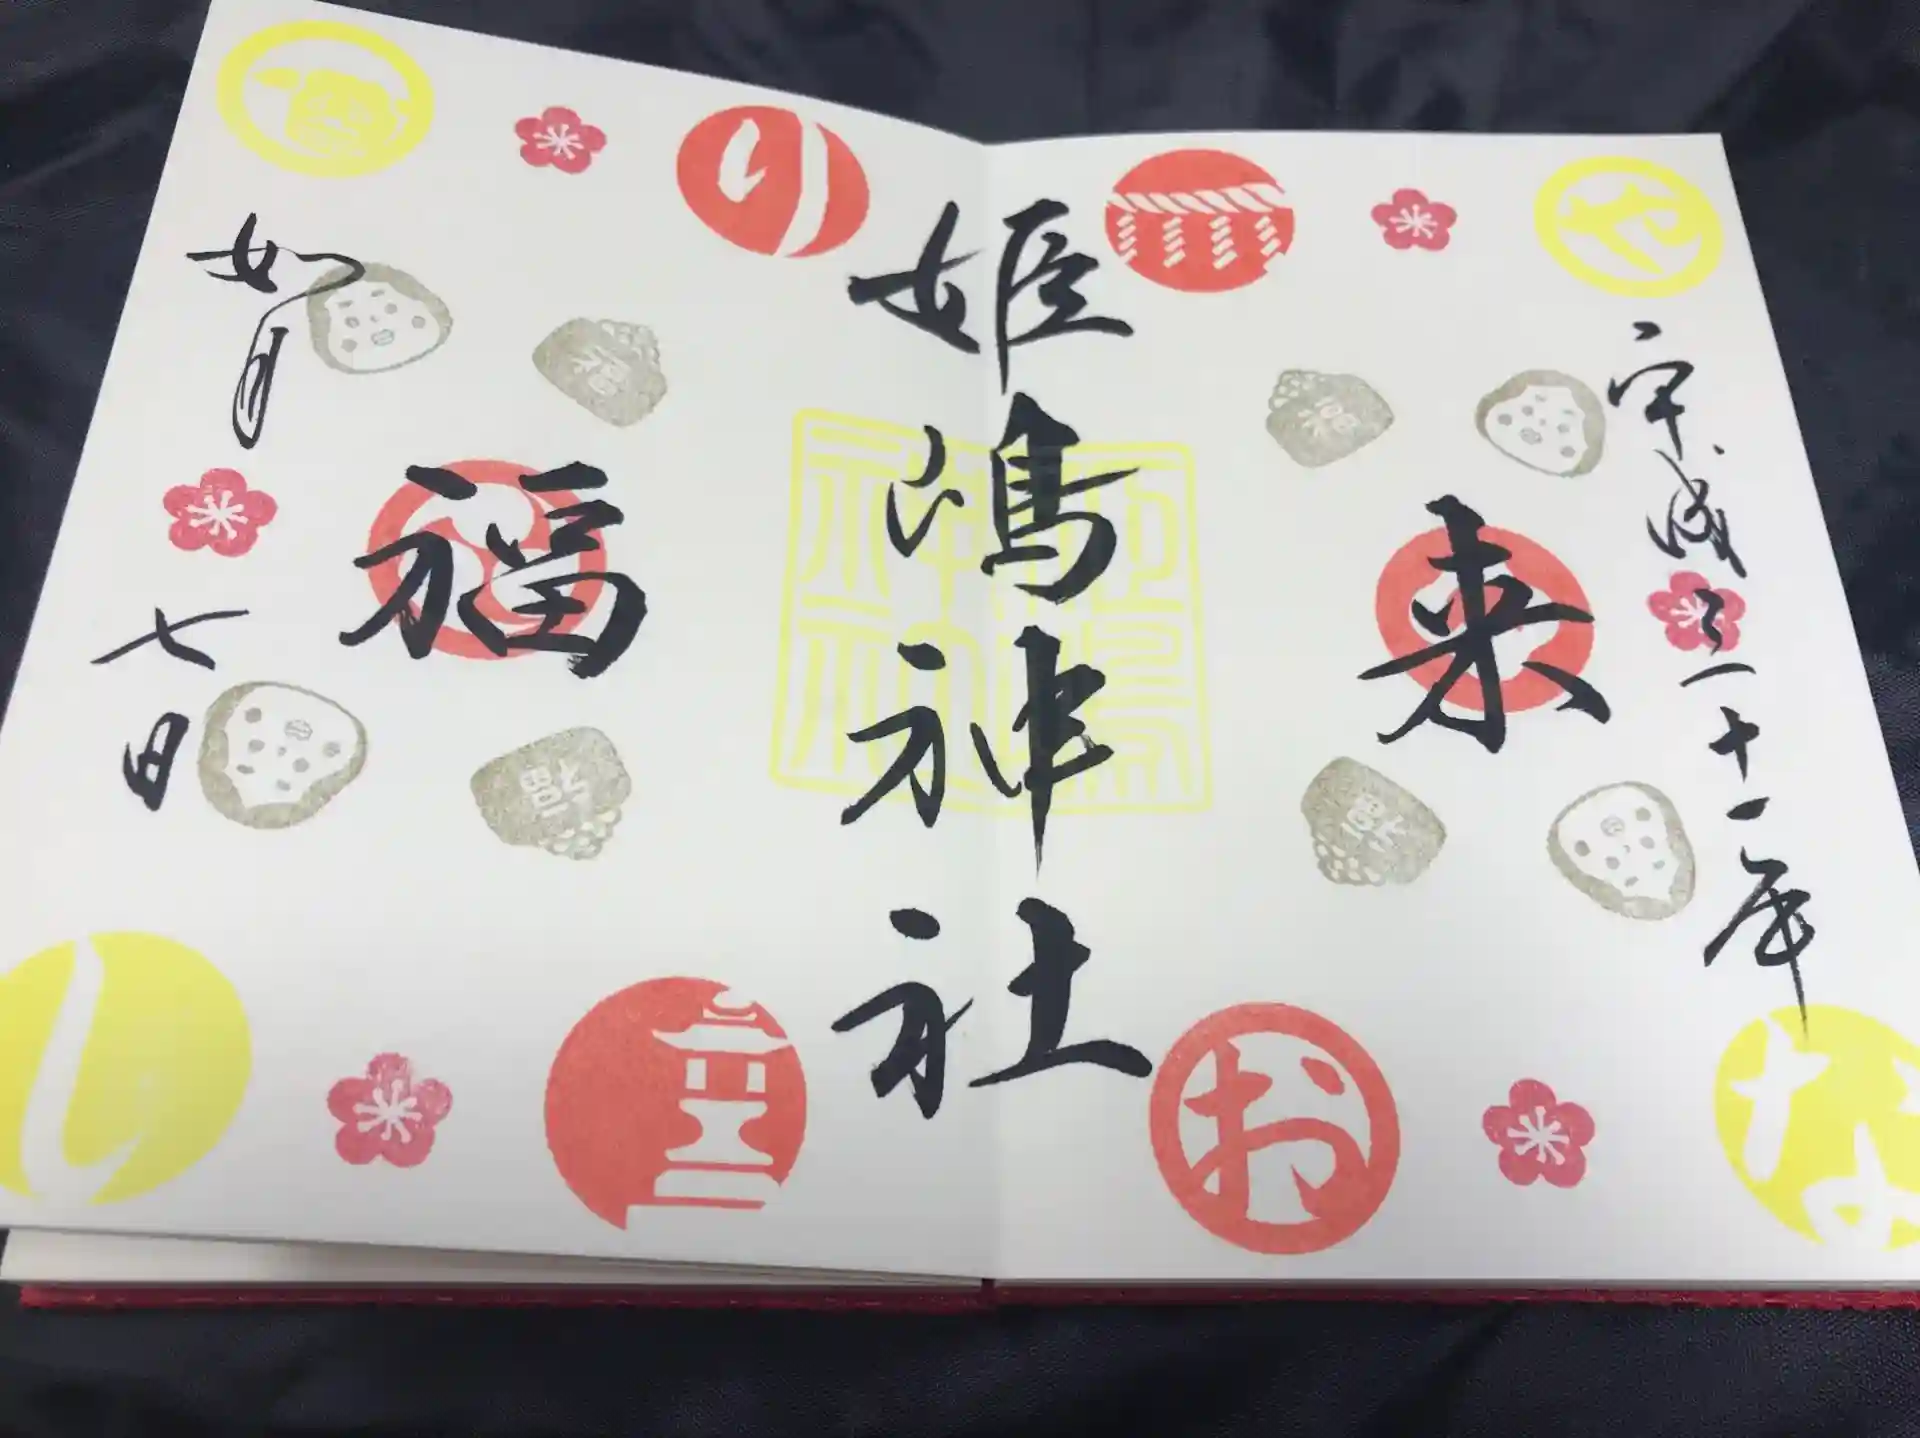 平成三十一年
来
姫嶋神社
福
如月
七日
や
な
お
り
し
姫嶋
神社
福
福
福
福